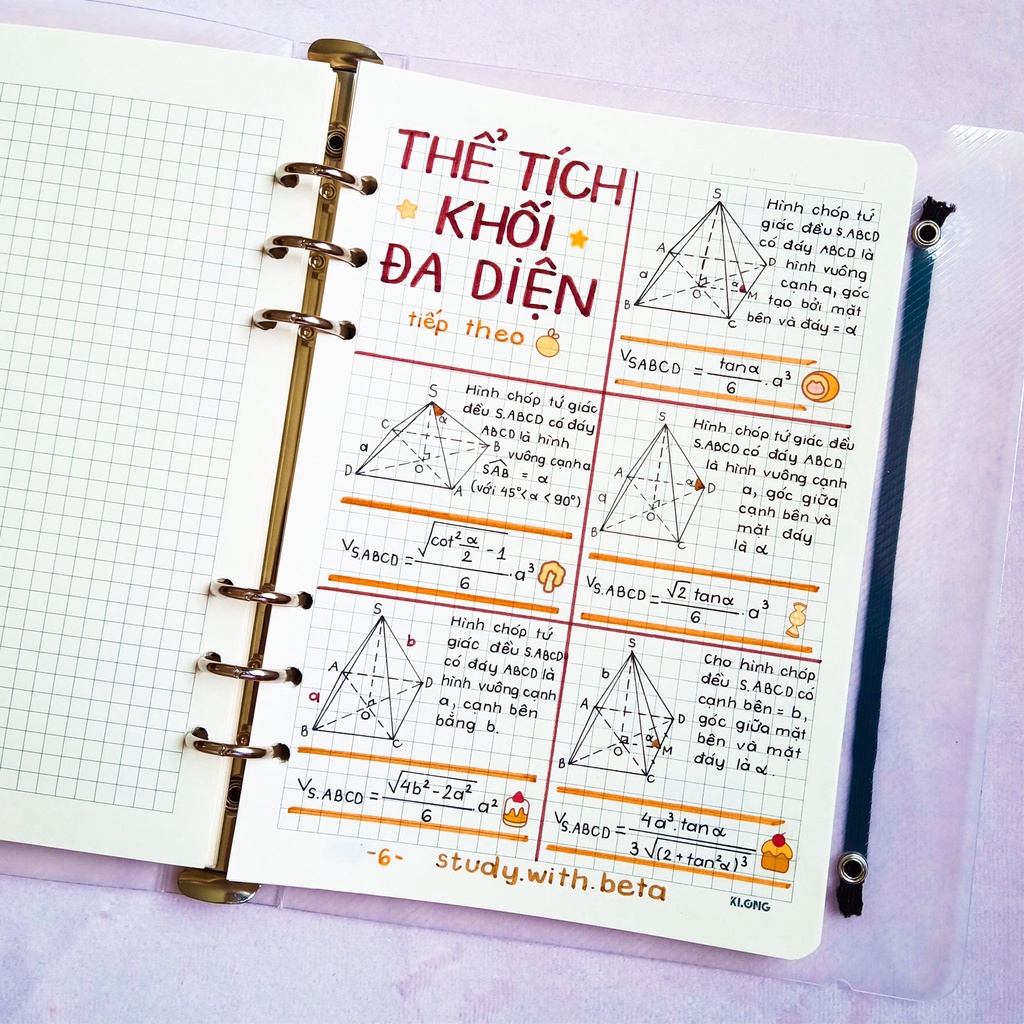 THỂ TÍCH
KHỐI
ĐA DIỆN
tiếp theo
S
A
D
a
B
O
α
M
C
Hình chóp tứ
giác đều S.ABCD
có đáy ABCD là
hình vuông
cạnh a, góc
tạo bởi mặt
bên và đáy = α
V_SABCD = tanα/6 . a³
S
α
C
B
a
O
D
A
Hình chóp tứ giác
đều S.ABCD có đáy
ABCD là hình
vuông cạnh a
SAB̂ = α
(với 45° < α < 90°)
V_S.ABCD = √(cot² α/2 - 1)/6 . a³
S
A
α
D
a
O
B
C
Hình chóp tứ giác đều
S.ABCD có đáy ABCD
là hình vuông cạnh
a, góc giữa
cạnh bên và
mặt đáy
là α
V_S.ABCD = √2 tanα/6 . a³
S
b
A
D
a
O
B
C
Hình chóp tứ
giác đều S.ABCD
có đáy ABCD là
hình vuông cạnh
a, cạnh bên
bằng b.
V_S.ABCD = √(4b² - 2a²)/6 . a²
S
b
A
D
α
O
M
B
C
Cho hình chóp
đều S.ABCD có
cạnh bên = b,
góc giữa mặt
bên và mặt
đáy là α.
V_S.ABCD = 4a³.tanα/3√(2+tan²α)³
-6- study.with.beta
KLONG